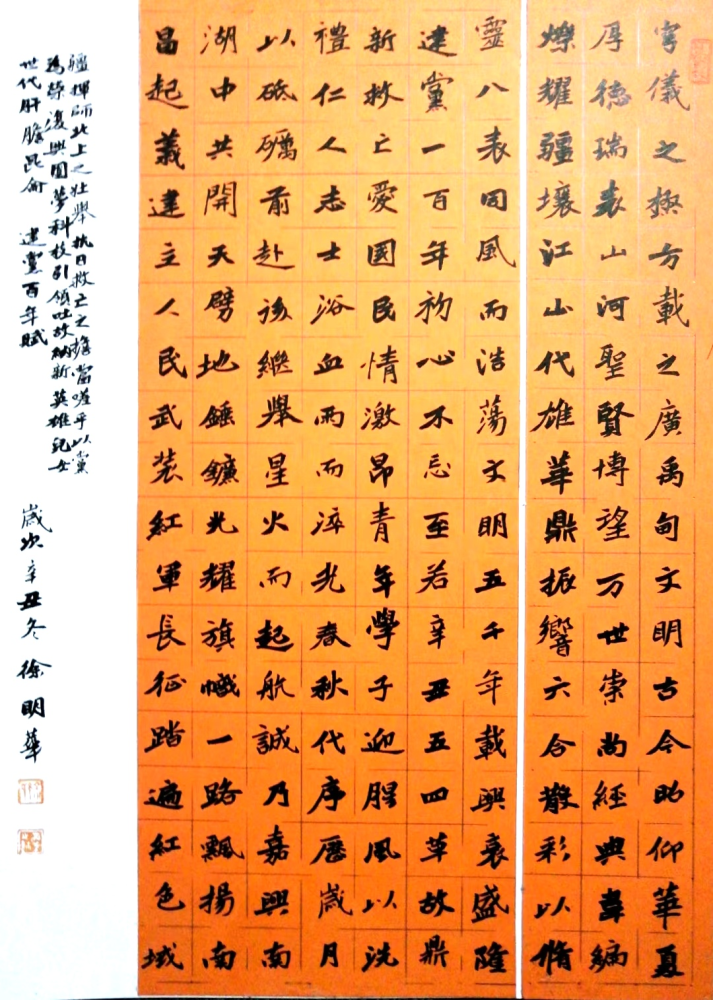 宇儀之極方載之廣禹甸文明古今昭仰華夏
厚德瑞表山河聖賢博望万世崇尚經典韋編
爍耀疆壤江山代雄華鼎振響六合散彩以脩
靈八表同風而浩蕩文明五千年載興衰盛隆
建黨一百年初心不忘至若辛丑五四革故鼎
新救亡愛國民情激昂青年學子迎腥風以洗
禮仁人志士浴血雨而淬光春秋代序歷歲月
以砥礪前赴後繼舉星火而起航誠乃嘉興南
湖中共開天劈地錘鐮光耀旗幟一路飄揚南
昌起義建立人民武裝紅軍長征踏遍紅色域
疆揮師北上之壯舉抗日救亡之擔當嗟乎以黨
為榮復興國夢科技引領吐故納新英雄兒女
世代肝膽昆侖 建黨百年賦
歲次辛丑冬徐明華